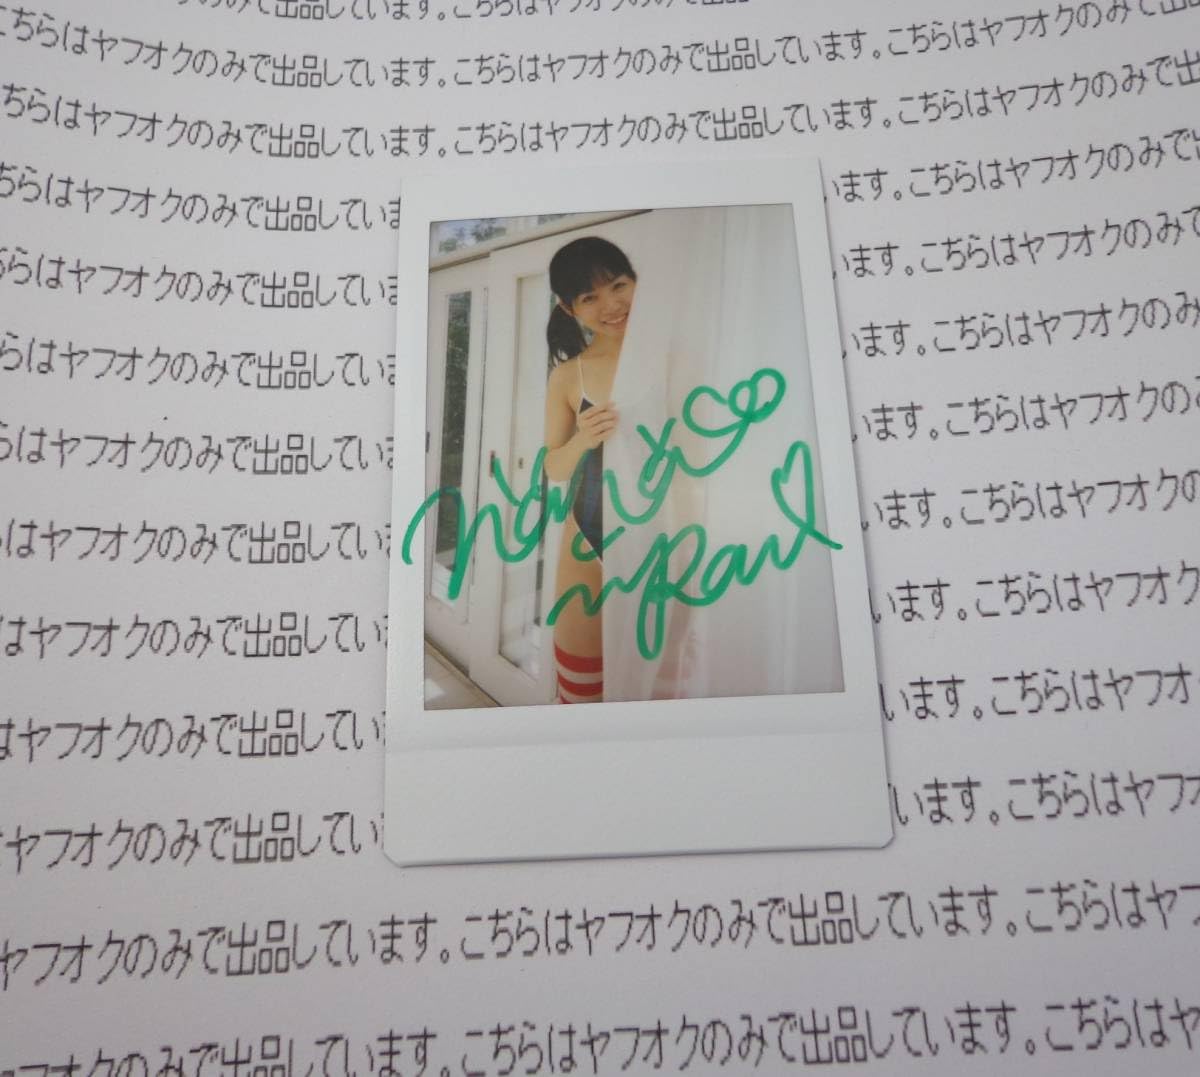 のみで出品しています。こちらはヤフオクのみで出品
こちらはヤフオクのみで出品しています。こちらはヤフオクのみで出品しています。こちらはヤフオクのみで出品
こちらはヤフオクのみで出品しています。こちらはヤフオクのみで出品しています。こちらはヤフオクのみで出
ちらはヤフオクのみで出品していま います。こちらはヤフオクのみで出
ちらはヤフオクのみで出品していま います。こちらはヤフオクのみで
らはヤフオクのみで出品していま います。こちらはヤフオクのみ
らはヤフオクのみで出品してい います。こちらはヤフオクのみ
はヤフオクのみで出品してい います。こちらはヤフオクの
はヤフオクのみで出品してい います。こちらはヤフオク
はヤフオクのみで出品してい います。こちらはヤフオ
ヤフオクのみで出品してい います。こちらはヤフオ
ヤフオクのみで出品しています。こちらはヤフオクのみで出品しています。こちらはヤフ
フオクのみで出品しています。こちらはヤフオクのみで出品しています。こちらはヤ